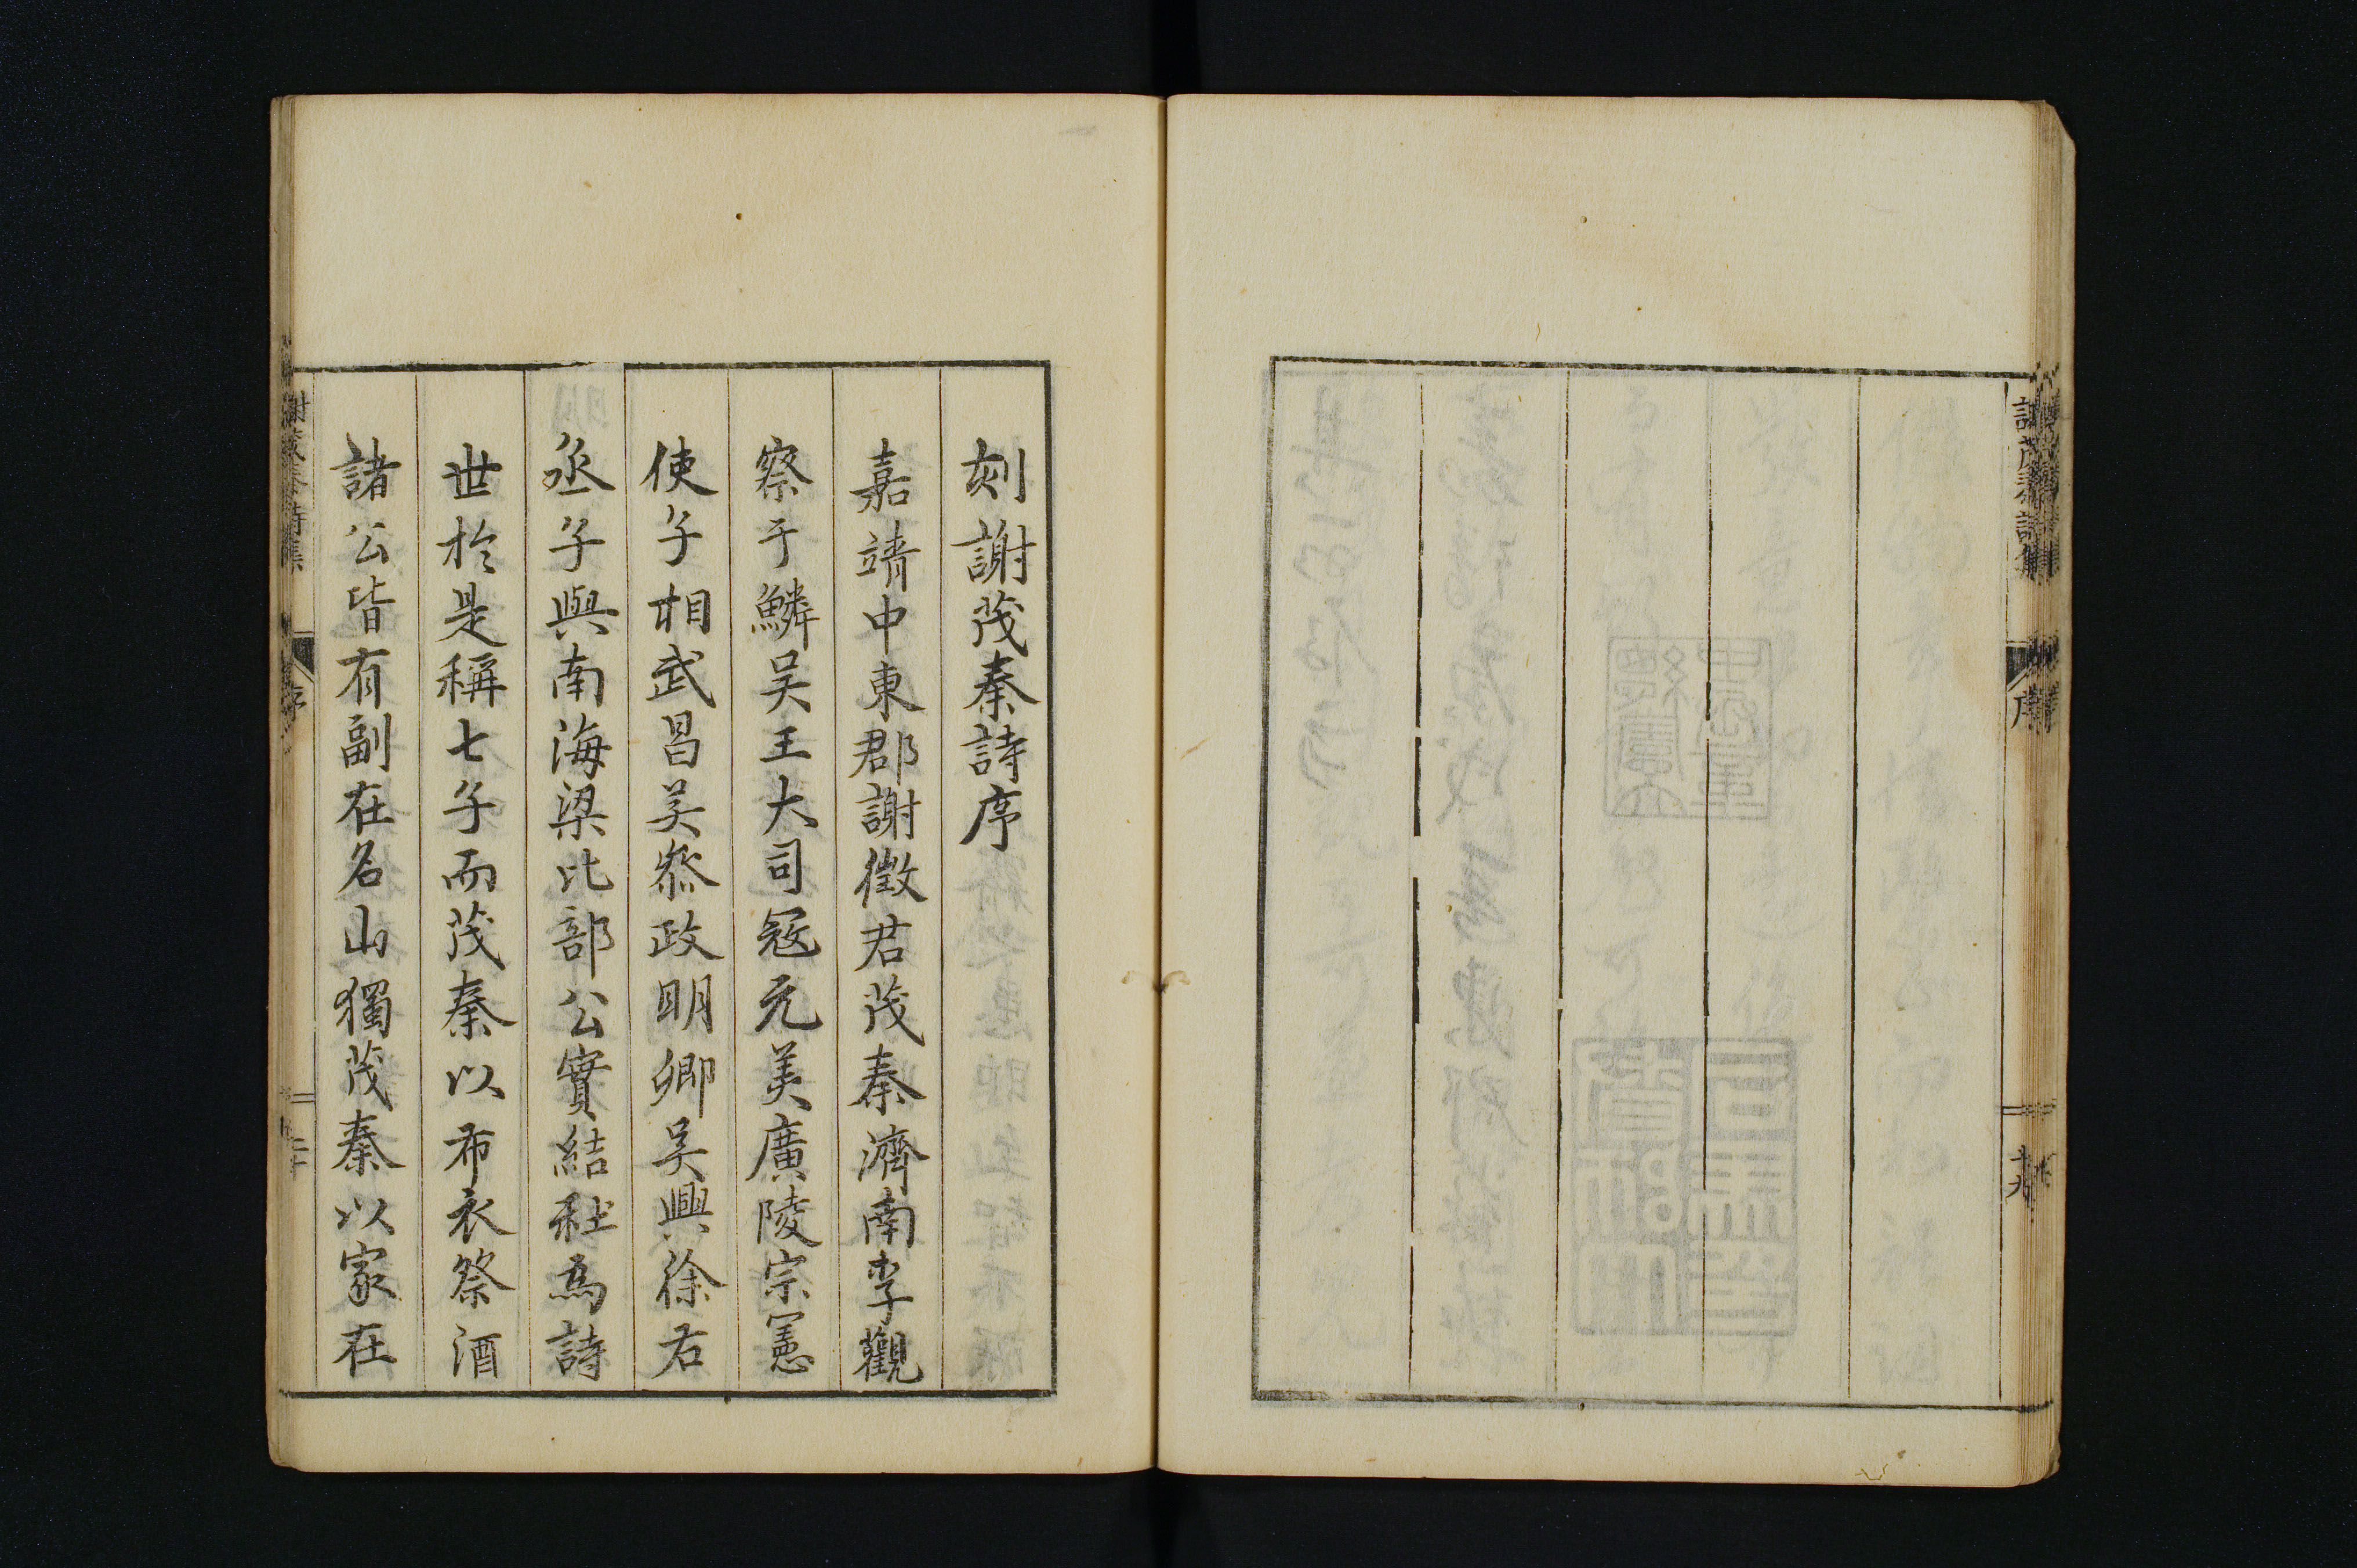 刻謝茂秦詩序
嘉靖中東郡謝徵君茂秦濟南李觀
察于鱗吳王大司寇元美廣陵宗憲
使子相武昌吴叅政明卿吴興徐右
丞子與南海梁比部公實結社爲詩
世於是稱七子而茂秦以布衣祭酒
諸公皆有副在名山獨茂秦以家在
謝茂秦詩集
序